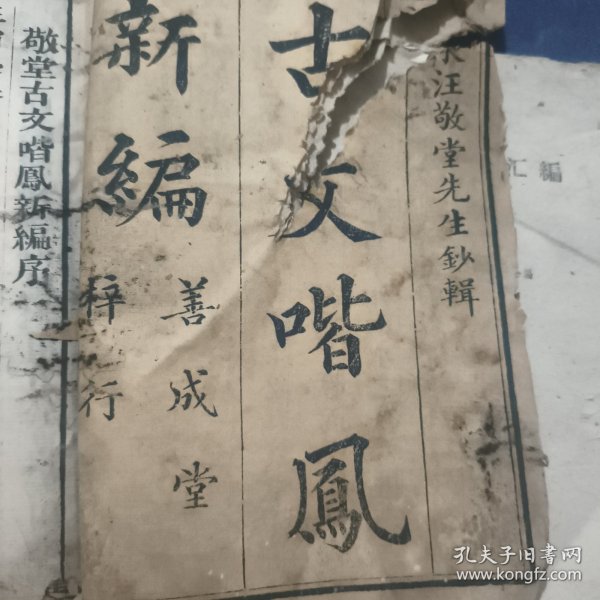 汪敬堂先生鈔輯
古文喈鳳
新編
善成堂
梓行
敬堂古文喈鳳新編序
汇编
孔夫子旧书网
www.kongfz.com